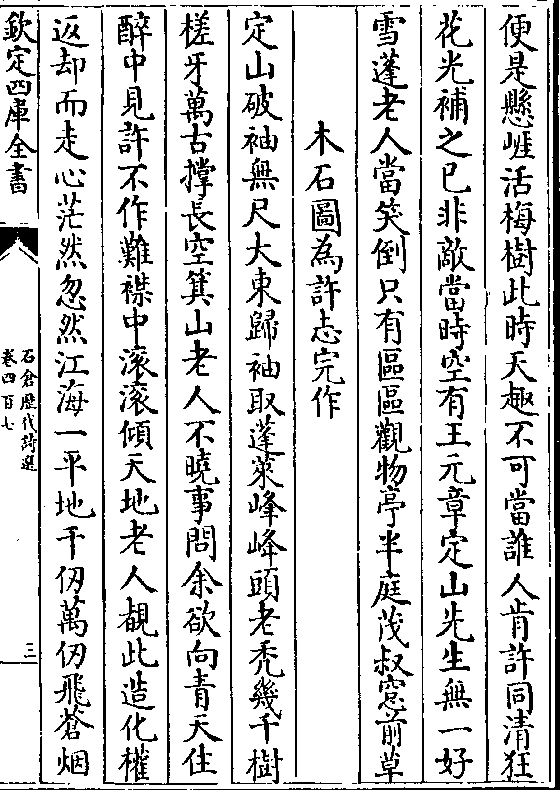 便是懸崖活梅樹此時天趣不可當誰人肯許同清狂
花光補之已非敵當時空有王元章定山先生無一好
雪蓬老人當笑倒只有區區觀物亭半庭茂叔窓前草
木石圖為許志完作
定山破袖無尺大東歸袖取蓬萊峰峰頭老禿幾千樹
槎牙萬古撑長空箕山老人不曉事問余欲向青天住
醉中見許不作難襟中滾滾傾天地老人覩此造化權
返却而走心茫然忽然江海一平地千仞萬仞飛蒼烟
欽定四庫全書
石倉歷代詩選
卷四百七
三